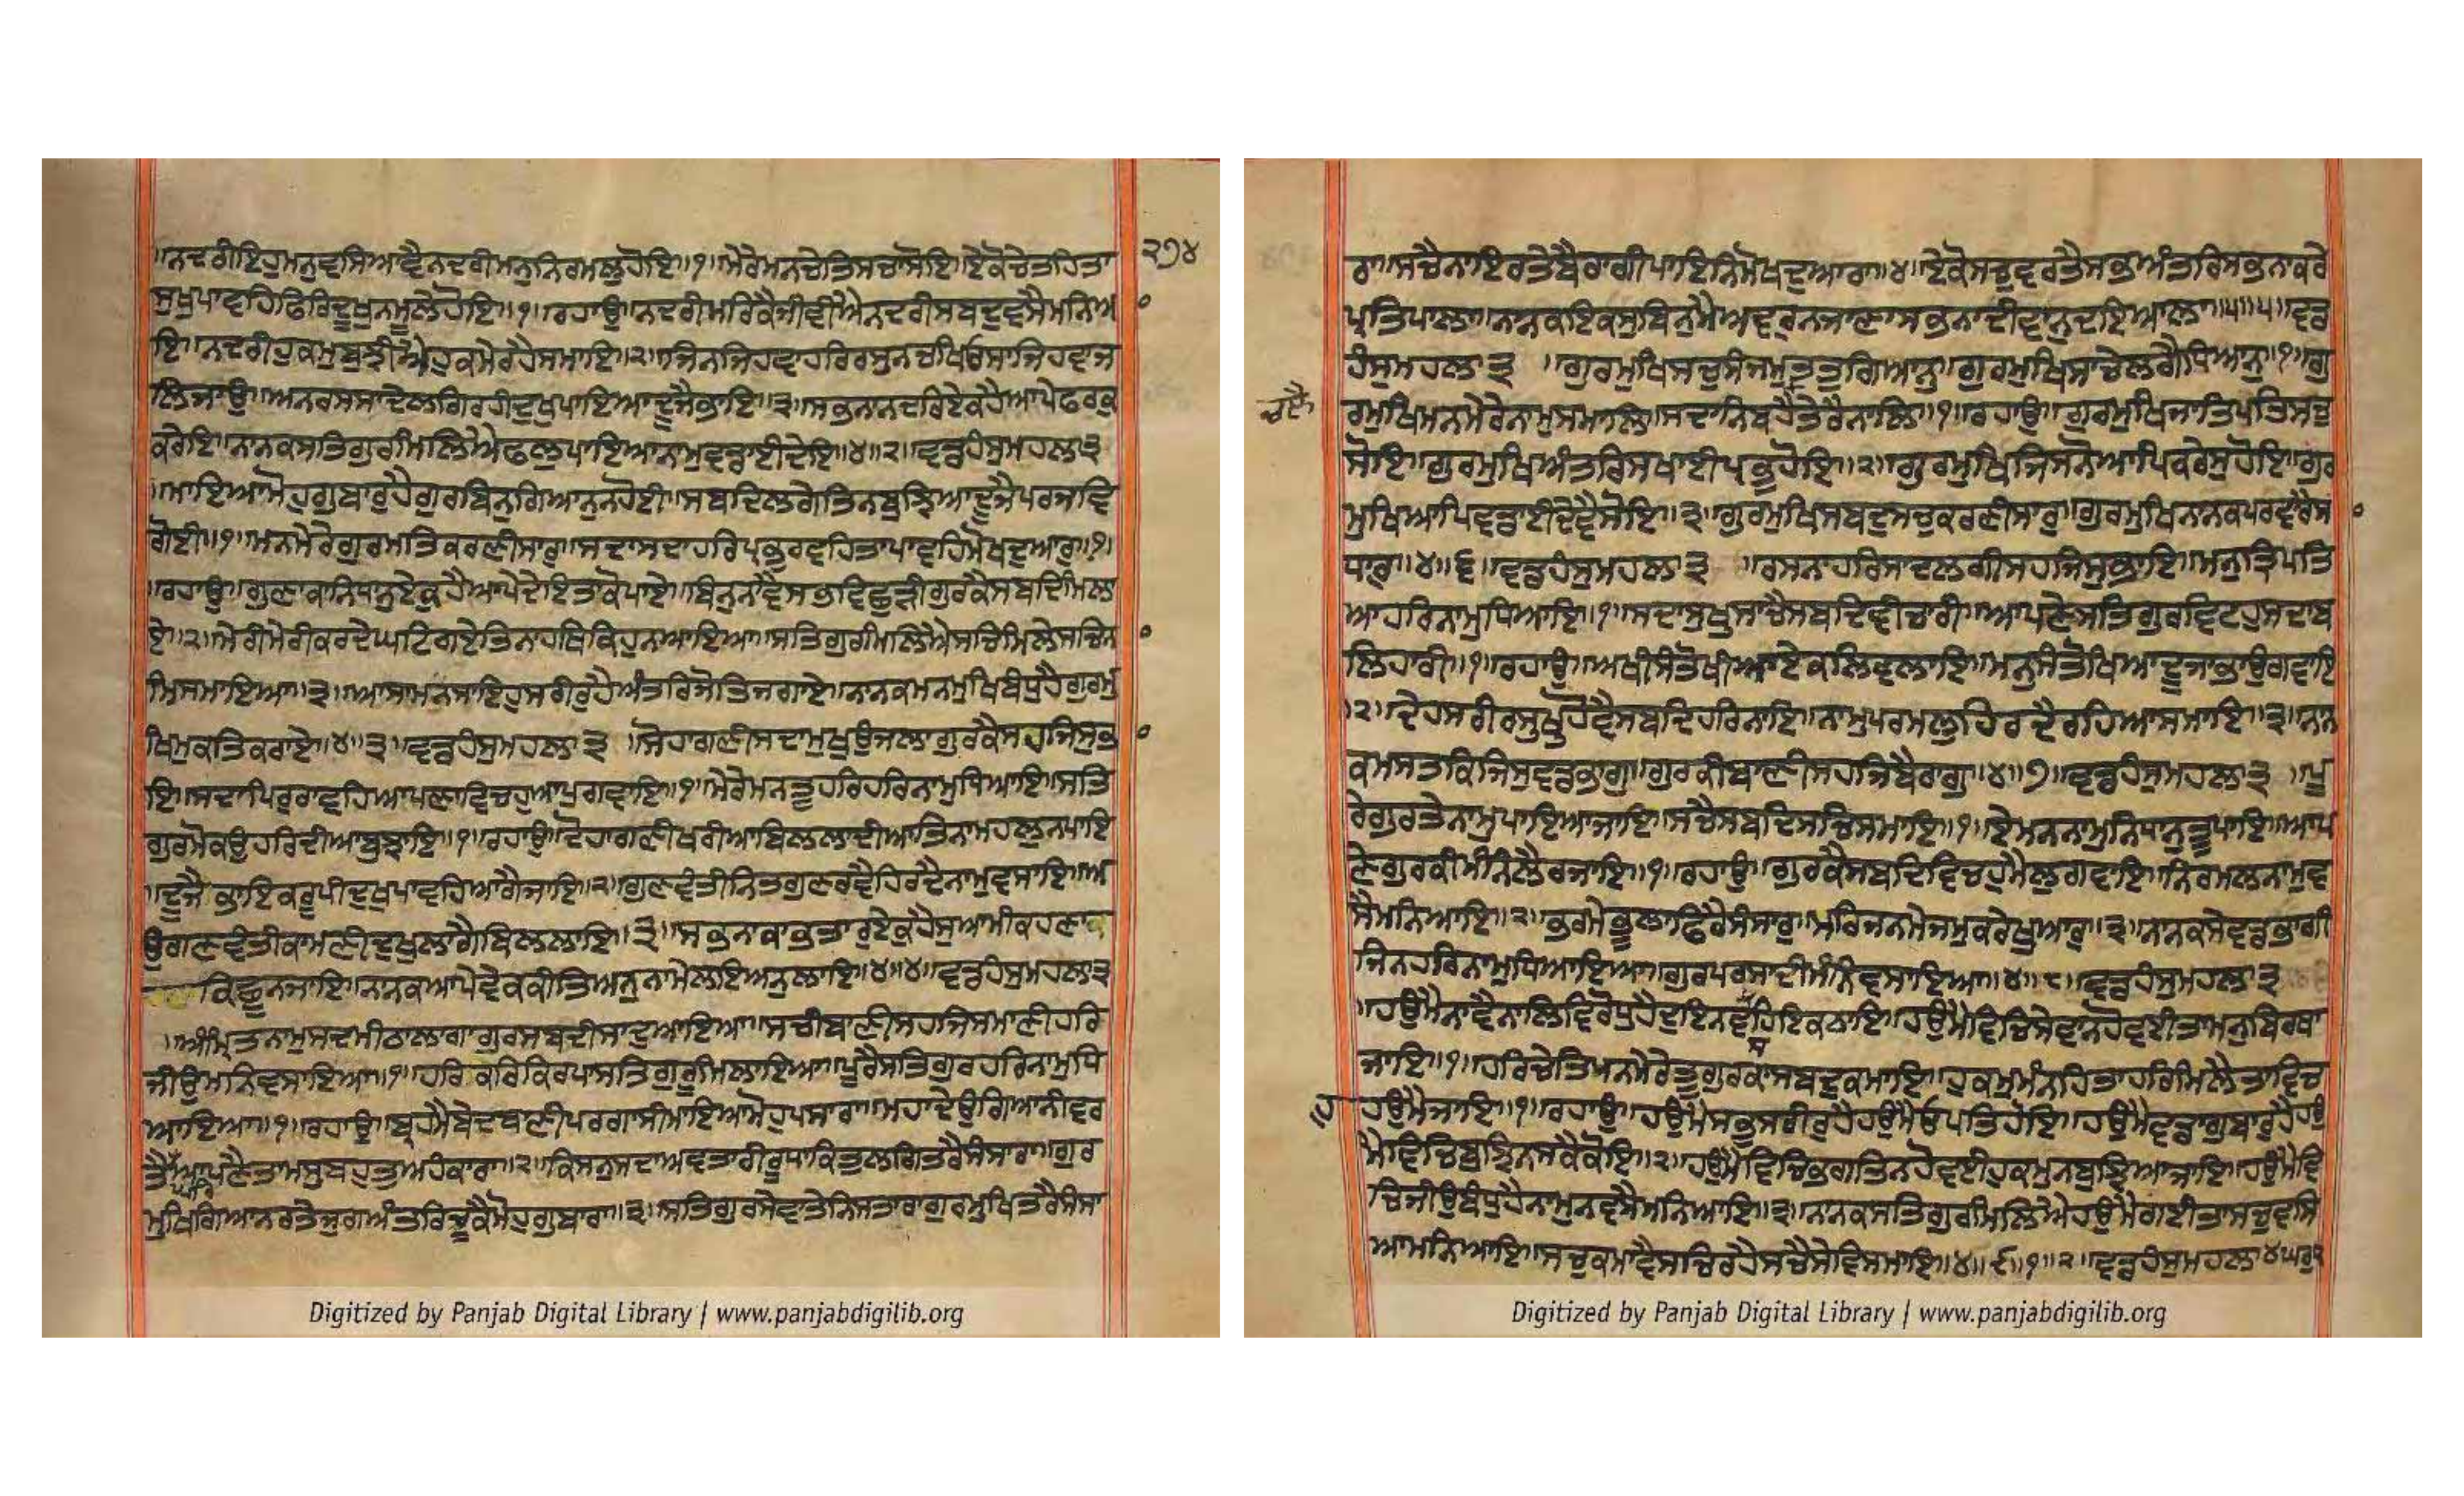 ।ਨਦਰੀਇਹੁਮਨੁਵਸਿਆਵੈਨਦਰੀਮਨੁਨਿਰਮਲੁਹੋਇ॥੧॥ਮੇਰੇਮਨਚੇਤਿਸਚਾਸੋਇ॥ਏਕੋਚੇਤਹਿਤਾ
੨੭੪
ਸੁਖੁਪਾਵਹਿਫਿਰਿਦੂਖੁਨਮੂਲੇਹੋਇ॥੧॥ਰਹਾਉ॥ਨਦਰੀਮਰਿਕੈਜੀਵੀਐਨਦਰੀਸਬਦੁਵਸੈਮਨਿਆ
ਇ॥ਨਦਰੀਹੁਕਮੁਬੁਝੀਐਹੁਕਮੇਰਹੈਸਮਾਇ॥੨॥ਜਿਨਜਿਹਵਾਹਰਿਰਸੁਨਚਖਿਓਸਾਜਿਹਵਾਜ
ਲਿਜਾਉ॥ਅਨਰਸਸਾਦੇਲਗਿਰਹੀਦੁਖੁਪਾਇਆਦੂਜੈਭਾਇ॥੩॥ਸਭਨਾਨਦਰਿਏਕਹੈਆਪੇਫਰਕੁ
ਕਰੇਇ॥ਨਾਨਕਸਤਿਗੁਰੀਮਲਿਐਫਲੁਪਾਇਆਨਾਮੁਵਡਾਈਦੇਇ॥੪॥੨॥ਵਡਹੰਸੁਮਹਲਾ੩
।ਮਾਇਆਮੋਹੁਗੁਬਾਰੁਹੈਗੁਰਬਿਨੁਗਿਆਨੁਨਹੋਈ॥ਸਬਦਿਲਗੇਤਿਨਬੁਝਿਆਦੂਜੈਪਰਜਵਿ
ਗੋਈ॥੧॥ਮਨਮੇਰੇਗੁਰਮਤਿਕਰਣੀਸਾਰੁ॥ਸਦਾਸਦਾਹਰਿਪ੍ਰਭੁਰਵਹਿਤਾਪਾਵਹਿਮੋਖਦੁਆਰੁ॥੧॥
।ਰਹਾਉ॥ਗੁਣਾਕਾਨਿਧਾਨੁਏਕੁਹੈਆਪੇਦੇਇਤਾਕੋਪਾਏ॥ਬਿਨੁਨਾਵੈਸਭਵਿਛੁੜੀਗੁਰਕੈਸਬਦਿਮਿਲਾ
ਏ॥੨॥ਮੇਰੀਮੇਰੀਕਰਦੇਘਟਿਗਏਤਿਨਾਹਥਿਕਿਹੁਨਆਇਆ॥ਸਤਿਗੁਰੀਮਲਿਐਸਚਿਮਿਲੇਸਚਿਨ
ਮਿਸਮਾਇਆ॥੩॥ਆਸਾਮਨਸਾਇਹੁਸਰੀਰੁਹੈਅੰਤਰਿਜੋਤਿਜਗਾਏ॥ਨਾਨਕਮਨਮੁਖਿਬੰਧੁਹੈਗੁਰਮੁ
ਖਿਮੁਕਤਿਕਰਾਏ॥੪॥੩॥ਵਡਹੰਸੁਮਹਲਾ੩ ।ਸੋਹਾਗਣੀਸਦਾਮੁਖੁਉਜਲਾਗੁਰਕੈਸਹਜਿਸੁਭ
ਇ॥ਸਦਾਪਿਰੁਰਾਵਹਿਆਪਣਾਵਿਚਹੁਆਪੁਗਵਾਇ॥੧॥ਮੇਰੇਮਨਤੂਹਰਿਹਰਿਨਾਮੁਧਿਆਇ॥ਸਤਿ
ਗੁਰਮੋਕਉਹਰਿਦੀਆਬੁਝਾਇ॥੧॥ਰਹਾਉ॥ਦੋਹਾਗਣੀਖਰੀਆਬਿਲਲਾਦੀਆਤਿਨਾਮਹਲੁਨਪਾਇ
।ਦੂਜੈਭਾਇਕਰੂਪੀਦੁਖੁਪਾਵਹਿਆਗੈਜਾਇ॥੨॥ਗੁਣਵੰਤੀਨਿਤਗੁਣਰਵੈਹਿਰਦੈਨਾਮੁਵਸਾਇ॥ਅ
ਉਗਣਵੰਤੀਕਾਮਣੀਦੁਖੁਲਾਗੈਬਿਲਲਾਇ॥੩॥ਸਭਨਾਕਾਭਤਾਰੁਏਕੁਹੈਸੁਆਮੀਕਹਣਾ
ਕਿਛੂਨਜਾਇ॥ਨਨਕਆਪੇਵੇਕਕੀਤਿਅਨੁਨਾਮੇਲਾਇਅਨੁਲਾਇ॥੪॥੪॥ਵਡਹੰਸੁਮਹਲਾ੩
।ਅੰਮ੍ਰਿਤਨਾਮੁਸਦਮੀਠਾਲਾਗਾਗੁਰਸਬਦੀਸਾਦੁਆਇਆ॥ਸਚੀਬਾਣੀਸਹਜਿਸਮਾਣੀਹਰਿ
ਜੀਉਮਨਿਵਸਾਇਆ॥੧॥ਹਰਿਕਰਿਕਿਰਪਾਸਤਿਗੁਰੂਮਿਲਾਇਆ॥ਪੂਰੈਸਤਿਗੁਰਹਰਿਨਾਮੁਧਿ
ਆਇਆ॥੧॥ਰਹਾਉ॥ਬ੍ਰਹਮੈਬੇਦਬਾਣੀਪਰਗਾਸੀਮਾਇਆਮੋਹੁਪਸਾਰਾ॥ਮਹਾਦੇਉਗਿਆਨੀਵਰ
ਤੈਆਪਣੈਤਾਮਸੁਬਹੁਤੁਅਹੰਕਾਰਾ॥੨॥ਕਿਸਨੁਸਦਾਅਵਤਾਰੀਰੂਧਾਕਿਤੁਲਗਿਤਰੈਸੰਸਾਰਾ॥ਗੁਰ
ਮੁਖਿਗਿਆਨਰਤੇਜੁਗਅੰਤਰਿਚੂਕੈਮੋਹੁਗੁਬਾਰਾ॥੩॥ਸਤਿਗੁਰਸੇਵਾਤੇਨਿਸਤਾਰਾਗੁਰਮੁਖਿਤਰੈਸੰਸਾ
Digitized by Panjab Digital Library | www.panjabdigilib.org
ਰਾ॥ਸਚੈਨਾਇਰਤੇਬੈਰਾਗੀਪਾਇਨਿਮੋਖਦੁਆਰਾ॥੪॥ਏਕੋਸਚੁਵਰਤੈਸਭਅੰਤਰਿਸਭਨਾਕਰੇ
ਪ੍ਰਤਿਪਾਲਾ॥ਨਨਕਇਕਸੁਬਿਨੁਮੈਅਵਰੁਨਜਾਣਾਸਭਨਾਦੀਵਾਨੁਦਇਆਲਾ॥੫॥੫॥ਵਡ
ਹੰਸੁਮਹਲਾ੩ ।ਗੁਰਮੁਖਿਸਚੁਸੰਜਮੁਤਤੁਗਿਆਨੁ॥ਗੁਰਮੁਖਿਸਾਚੇਲਗੈਧਿਆਨੁ॥੧॥ਗੁ
ਰਮੁਖਿਮਨਮੇਰੇਨਾਮੁਸਮਾਲਿ॥ਸਦਾਨਿਬਹੈਤੇਰੈਨਾਲਿ॥੧॥ਰਹਾਉ॥ਗੁਰਮੁਖਿਜਾਤਿਪਤਿਸਚੁ
ਸੋਇ॥ਗੁਰਮੁਖਿਅੰਤਰਿਸਖਾਈਪ੍ਰਭੁਹੋਇ॥੨॥ਗੁਰਮੁਖਿਜਿਸਨੋਆਪਿਕਰੇਸੁਹੋਇ॥ਗੁਰ
ਮੁਖਿਆਪਿਵਡਾਈਦੇਵੈਸੋਇ॥੩॥ਗੁਰਮੁਖਿਸਬਦੁਸਚੁਕਰਣੀਸਾਰੁ॥ਗੁਰਮੁਖਿਨਨਕਪਰਵਾਰੈਸ
ਧਾਰੁ॥੪॥੬॥ਵਡਹੰਸੁਮਹਲਾ੩ ।ਰਸਨਾਹਰਿਸਾਦਲਗੀਸਹਜਿਸੁਭਾਇ॥ਮਨੁਤ੍ਰਿਪਤਿ
ਆਹਰਿਨਾਮੁਧਿਆਇ॥੧॥ਸਦਾਸੁਖੁਸਾਚੈਸਬਦਿਵੀਚਾਰੀ॥ਆਪਣੇਸਤਿਗੁਰਵਿਟਹੁਸਦਾਬ
ਲਿਹਾਰੀ॥੧॥ਰਹਾਉ॥ਅਖੀਸੰਤੋਖੀਆਏਕਲਿਵਲਾਇ॥ਮਨੁਸੰਤੋਖਿਆਦੂਜਾਭਾਉਗਵਾਇ
।੨॥ਦੇਹਸਰੀਰਸੁਖੁਹੋਵੈਸਬਦਿਹਰਿਨਾਇ॥ਨਾਮੁਪਰਮਲੁਹਿਰਦੈਰਹਿਆਸਮਾਇ॥੩॥ਨਾਨ
ਕਮਸਤਕਿਜਿਸੁਵਡਭਾਗੁ॥ਗੁਰਕੀਬਾਣੀਸਹਜਿਬੈਰਾਗੁ॥੪॥੭॥ਵਡਹੰਸੁਮਹਲਾ੩ ।ਪੂ
ਰੇਗੁਰਤੇਨਾਮੁਪਾਇਆਜਾਇ॥ਸਚੈਸਬਦਿਸਚਿਸਮਾਇ॥੧॥ਏਮਨਨਾਮੁਨਿਧਾਨੁਤੂਪਾਇ॥ਆਪ
ਣੇਗੁਰਕੀਮੰਨਿਲੈਰਜਾਇ॥੧॥ਰਹਾਉ॥ਗੁਰਕੈਸਬਦਿਵਿਚਹੁਮੈਲੁਗਵਾਇ॥ਨਿਰਮਲਨਾਮੁਵ
ਸੈਮਨਿਆਇ॥੨॥ਭਰਮੇਭੂਲਾਫਿਰੈਸੰਸਾਰੁ॥ਮਰਿਜਨਮੇਜਮੁਕਰੇਖੁਆਰੁ॥੩॥ਨਨਕਸੇਵਡਭਾਗੀ
ਜਿਨਹਰਿਨਾਮੁਧਿਆਇਆ॥ਗੁਰਪਰਸਾਦੀਮੰਨਿਵਸਾਇਆ॥੪॥੮॥ਵਡਹੰਸੁਮਹਲਾ੩
।ਹਉਮੈਨਾਵੈਨਾਲਿਵਿਰੋਧੁਹੈਦੁਇਨਵਸਹਿਇਕਠਾਇ॥ਹਉਮੈਵਿਚਿਸੇਵਾਨਹੋਵਈਤਾਮਨੁਬਿਰਥਾ
ਜਾਇ॥੧॥ਹਰਿਚੇਤਿਮਨਮੇਰੇਤੂਗੁਰਕਾਸਬਦੁਕਮਾਇ॥ਹੁਕਮੁਮੰਨਹਿਤਾਹਰਿਮਿਲੈਤਾਵਿਚ
ਹੁ ਹਉਮੈਜਾਇ॥੧॥ਰਹਾਉ॥ਹਉਮੈਸਭੁਸਰੀਰੁਹੈਹਉਮੈਓਪਤਿਹੋਇ॥ਹਉਮੈਵਡਾਗੁਬਾਰੁਹੈਹਉ
ਮੈਵਿਚਿਬੁਝਿਨਸਕੈਕੋਇ॥੨॥ਹਉਮੈਵਿਚਿਭਗਤਿਨਹੋਵਈਹੁਕਮੁਨਬੁਝਿਆਜਾਇ॥ਹਉਮੈਵਿ
ਚਿਜੀਉਬੰਧੁਹੈਨਾਮੁਨਵਸੈਮਨਿਆਇ॥੩॥ਨਨਕਸਤਿਗੁਰੀਮਲਿਐਹਉਮੈਗਈਤਾਸਚੁਵਸਿ
ਆਮਨਿਆਇ॥ਸਚੁਕਮਾਵੈਸਚਿਰਹੈਸਚੈਸੇਵਿਸਮਾਇ॥੪॥੯॥੧॥੨॥ਵਡਹੰਸੁਮਹਲਾ੪ਘਰੁ੨
Digitized by Panjab Digital Library | www.panjabdigilib.org